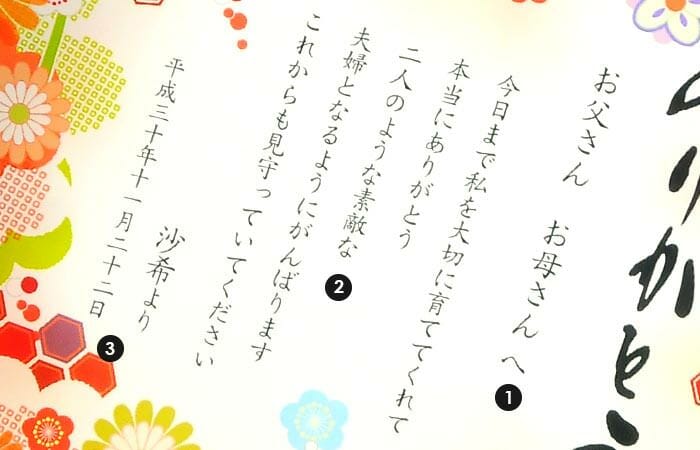 ありがとう
お父さん　お母さんへ
今日まで私を大切に育ててくれて
本当にありがとう
二人のような素敵な
夫婦となるようにがんばります
これからも見守っていてください
沙希より
平成三十年十一月二十二日
1
2
3